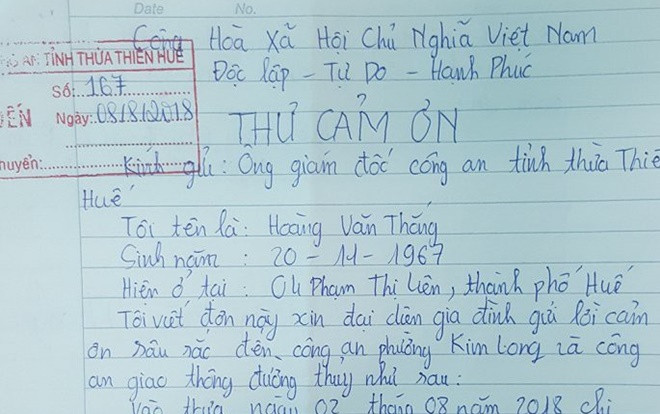 Date No.
Cộng Hoà Xã Hội Chủ Nghĩa Việt Nam
AN TỈNH THỪA THIÊN HUẾ
Độc lập - Tự Do - Hạnh Phúc
Số: 167
ĐẾN Ngày: 08/8/2018
THƯ CẢM ƠN
huyển:
Kính gửi: Ông giám đốc công an tỉnh thừa Thiê
Huế
Tôi tên là: Hoàng Văn Thắng
Sinh năm : 20 - 11 - 1967
Hiện ở tại : 04 Phạm Thị Liên, thành phố Huế
Tôi viết đơn này xin đại diện gia đình gửi lời cảm
ơn sâu sắc đến công an phường Kim Long và công
an giao thông đường thuỷ như sau:
Vào trưa ngày 02 tháng 08 năm 2018 chị